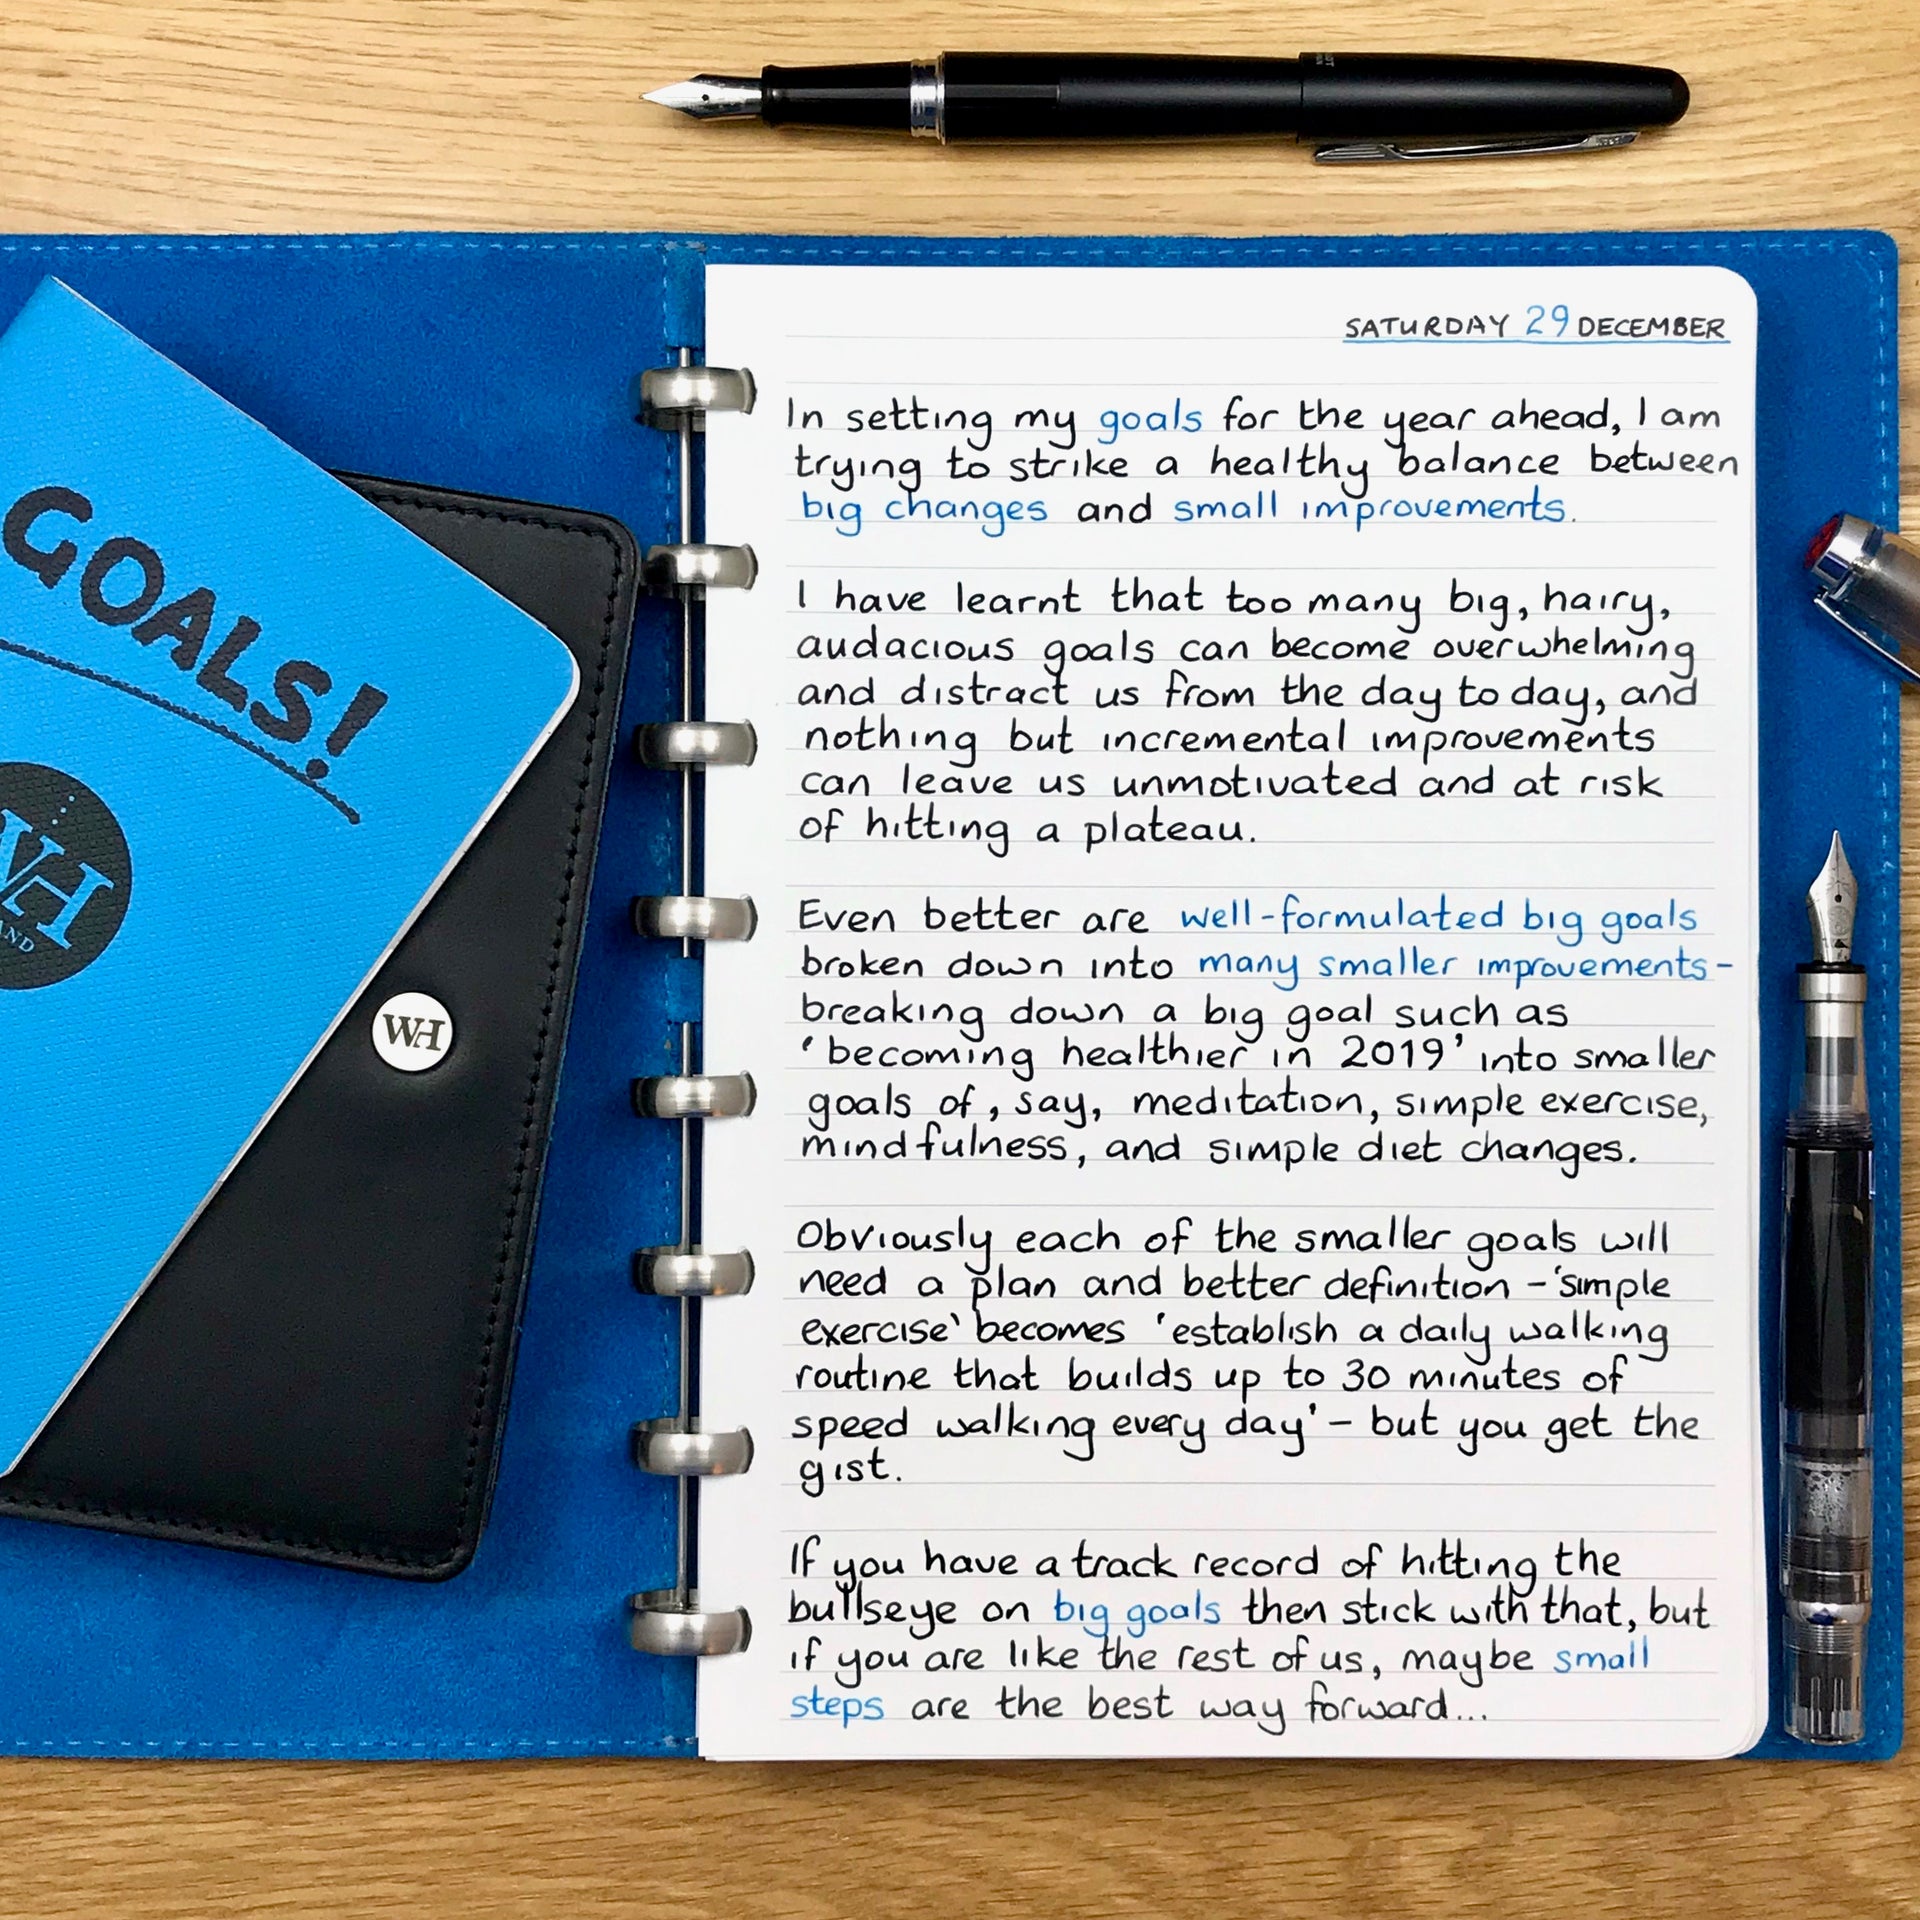 SATURDAY 29 DECEMBER
In setting my goals for the year ahead, I am
trying to strike a healthy balance between
big changes and small improvements.
I have learnt that too many big, hairy,
audacious goals can become overwhelming
and distract us from the day to day, and
nothing but incremental improvements
can leave us unmotivated and at risk
of hitting a plateau.
Even better are well-formulated big goals
broken down into many smaller improvements-
breaking down a big goal such as
'becoming healthier in 2019' into smaller
goals of, say, meditation, simple exercise,
mindfulness, and simple diet changes.
Obviously each of the smaller goals will
need a plan and better definition - 'simple
exercise' becomes 'establish a daily walking
routine that builds up to 30 minutes of
speed walking every day' - but you get the
gist.
If you have a track record of hitting the
bullseye on big goals then stick with that, but
if you are like the rest of us, maybe small
steps are the best way forward...
GOALS!
WH
WH